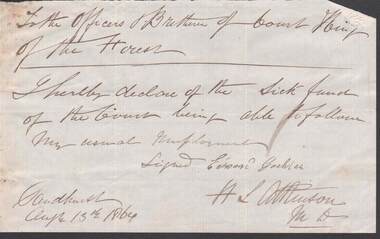 To the Officers & Brethren of Court King
of the Forest
I hereby declare of the Sick fund
of the Court being able to follow
My usual Employment
Signed Edward
H L Atkinson
M D
Sandhurst
Augt 13th 1864